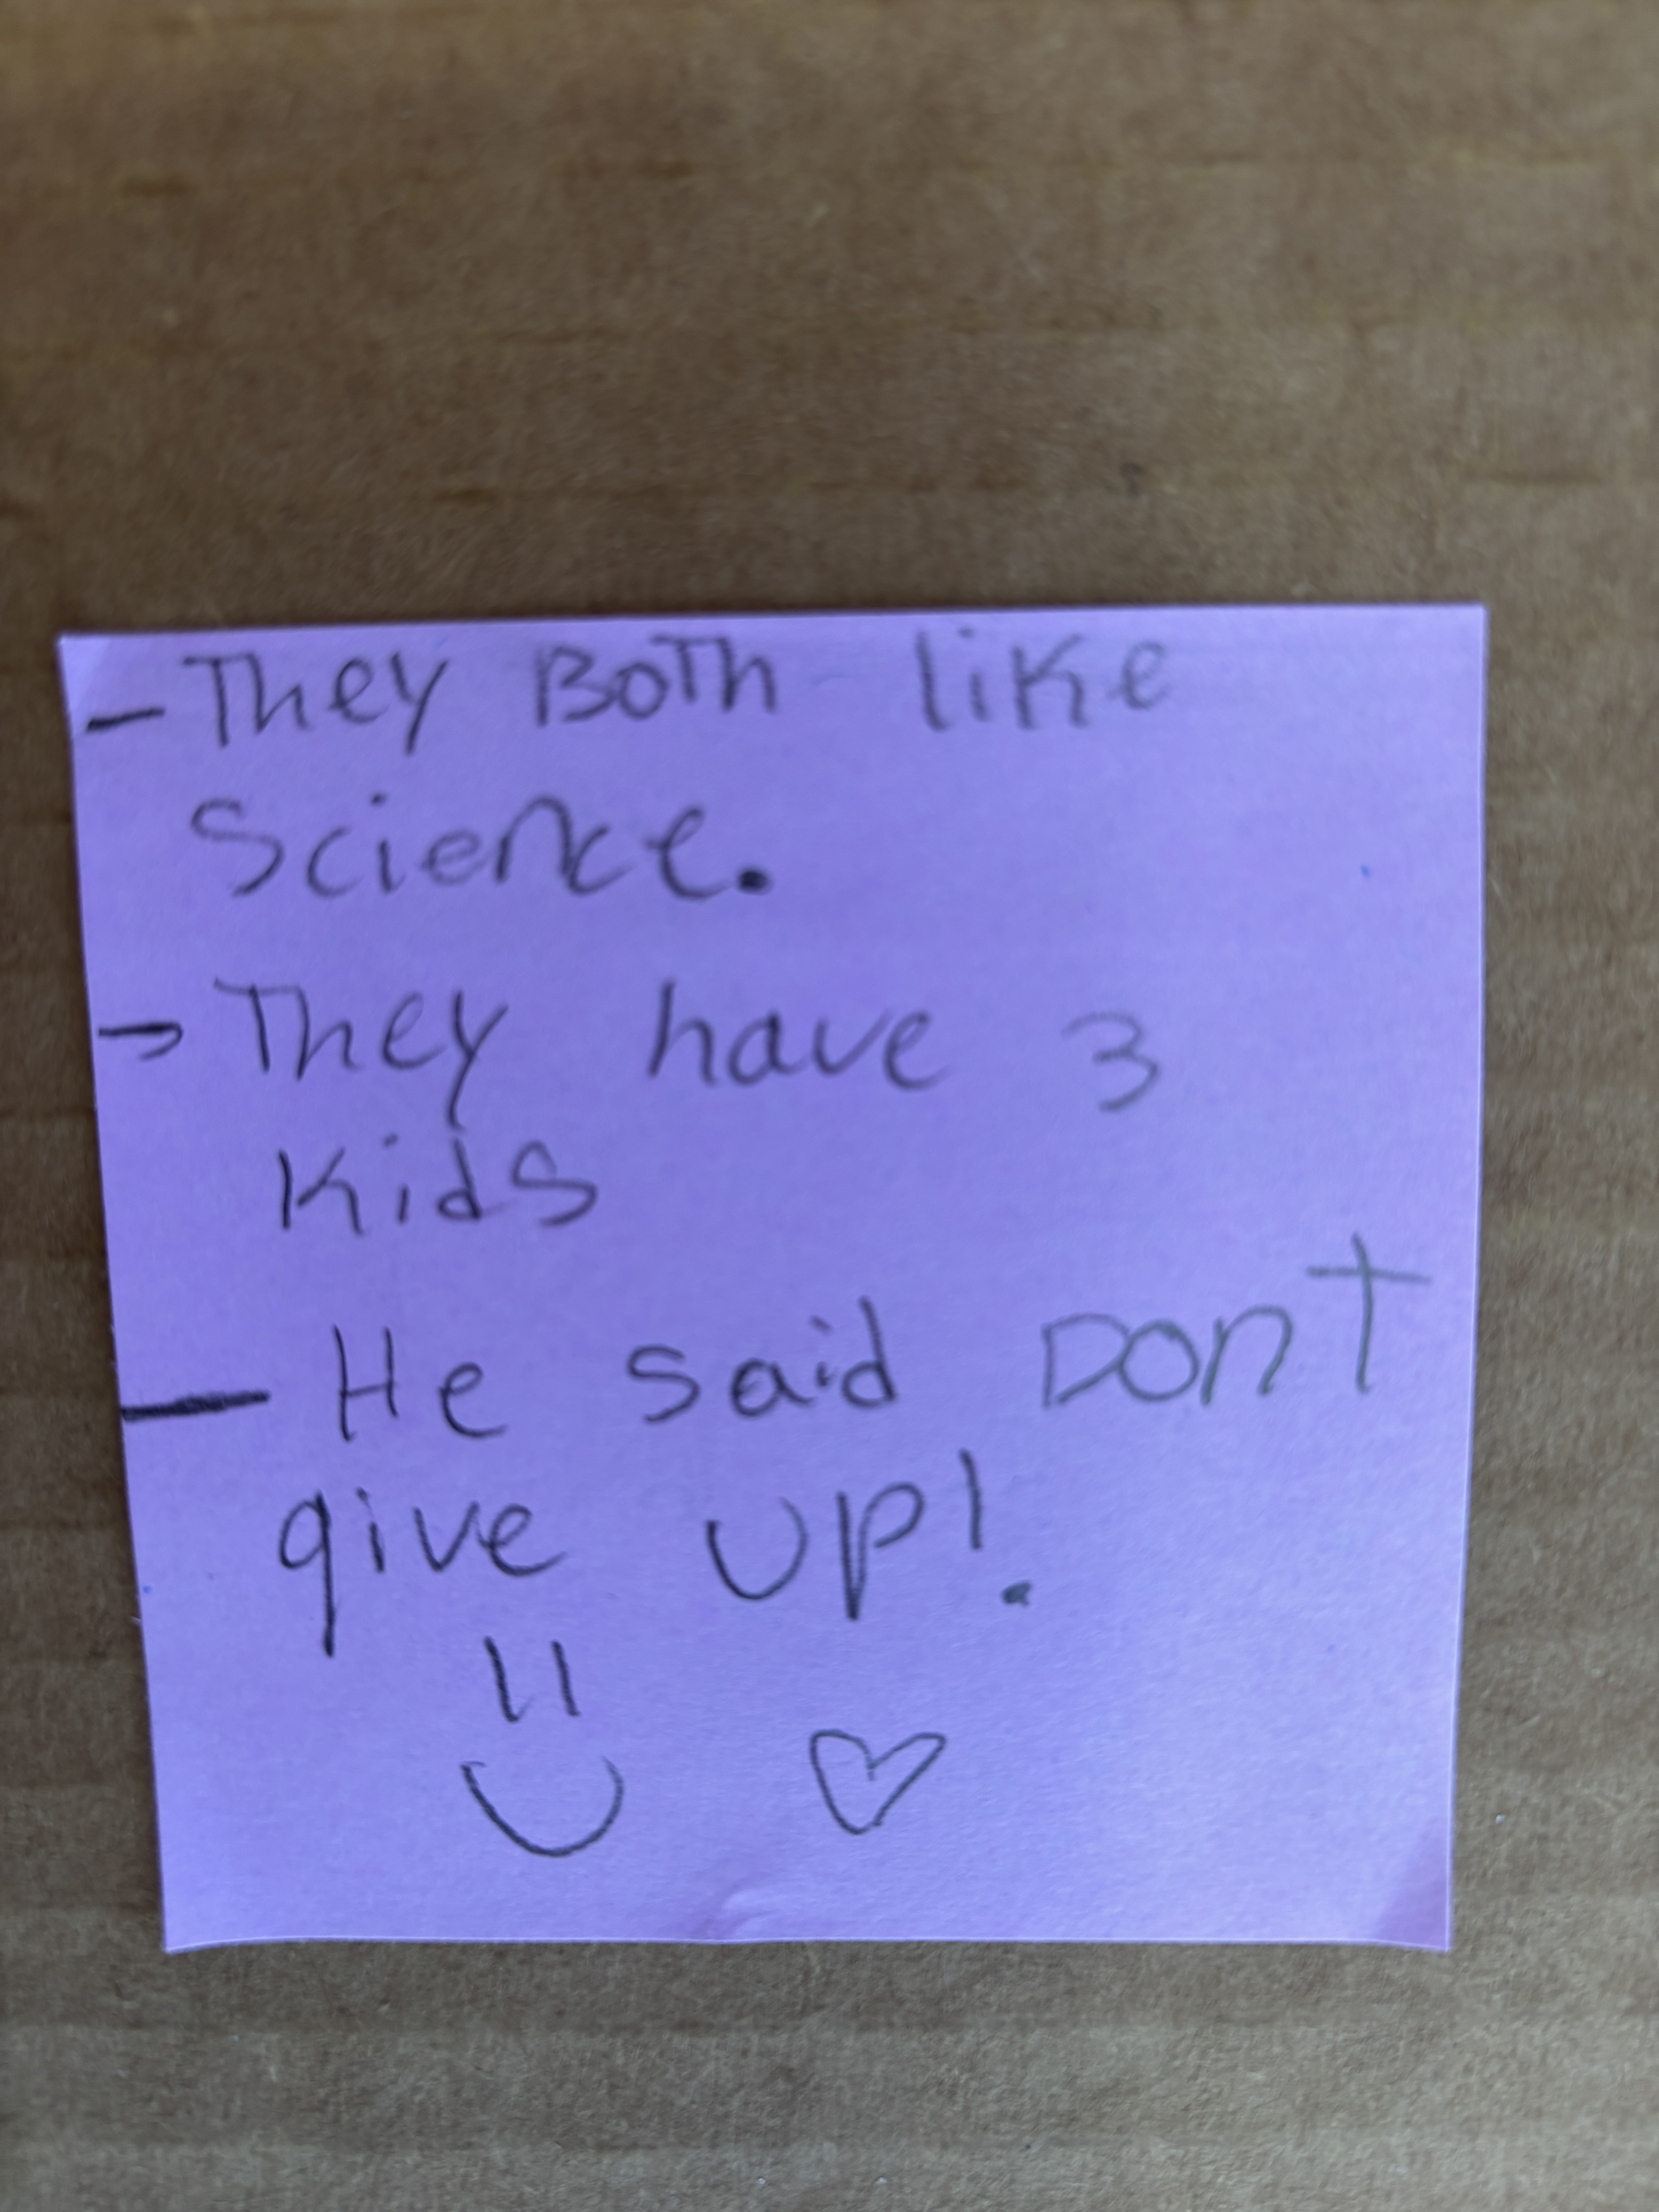 - They Both like
Science.
- They have 3
Kids
- He said Dont
give up!